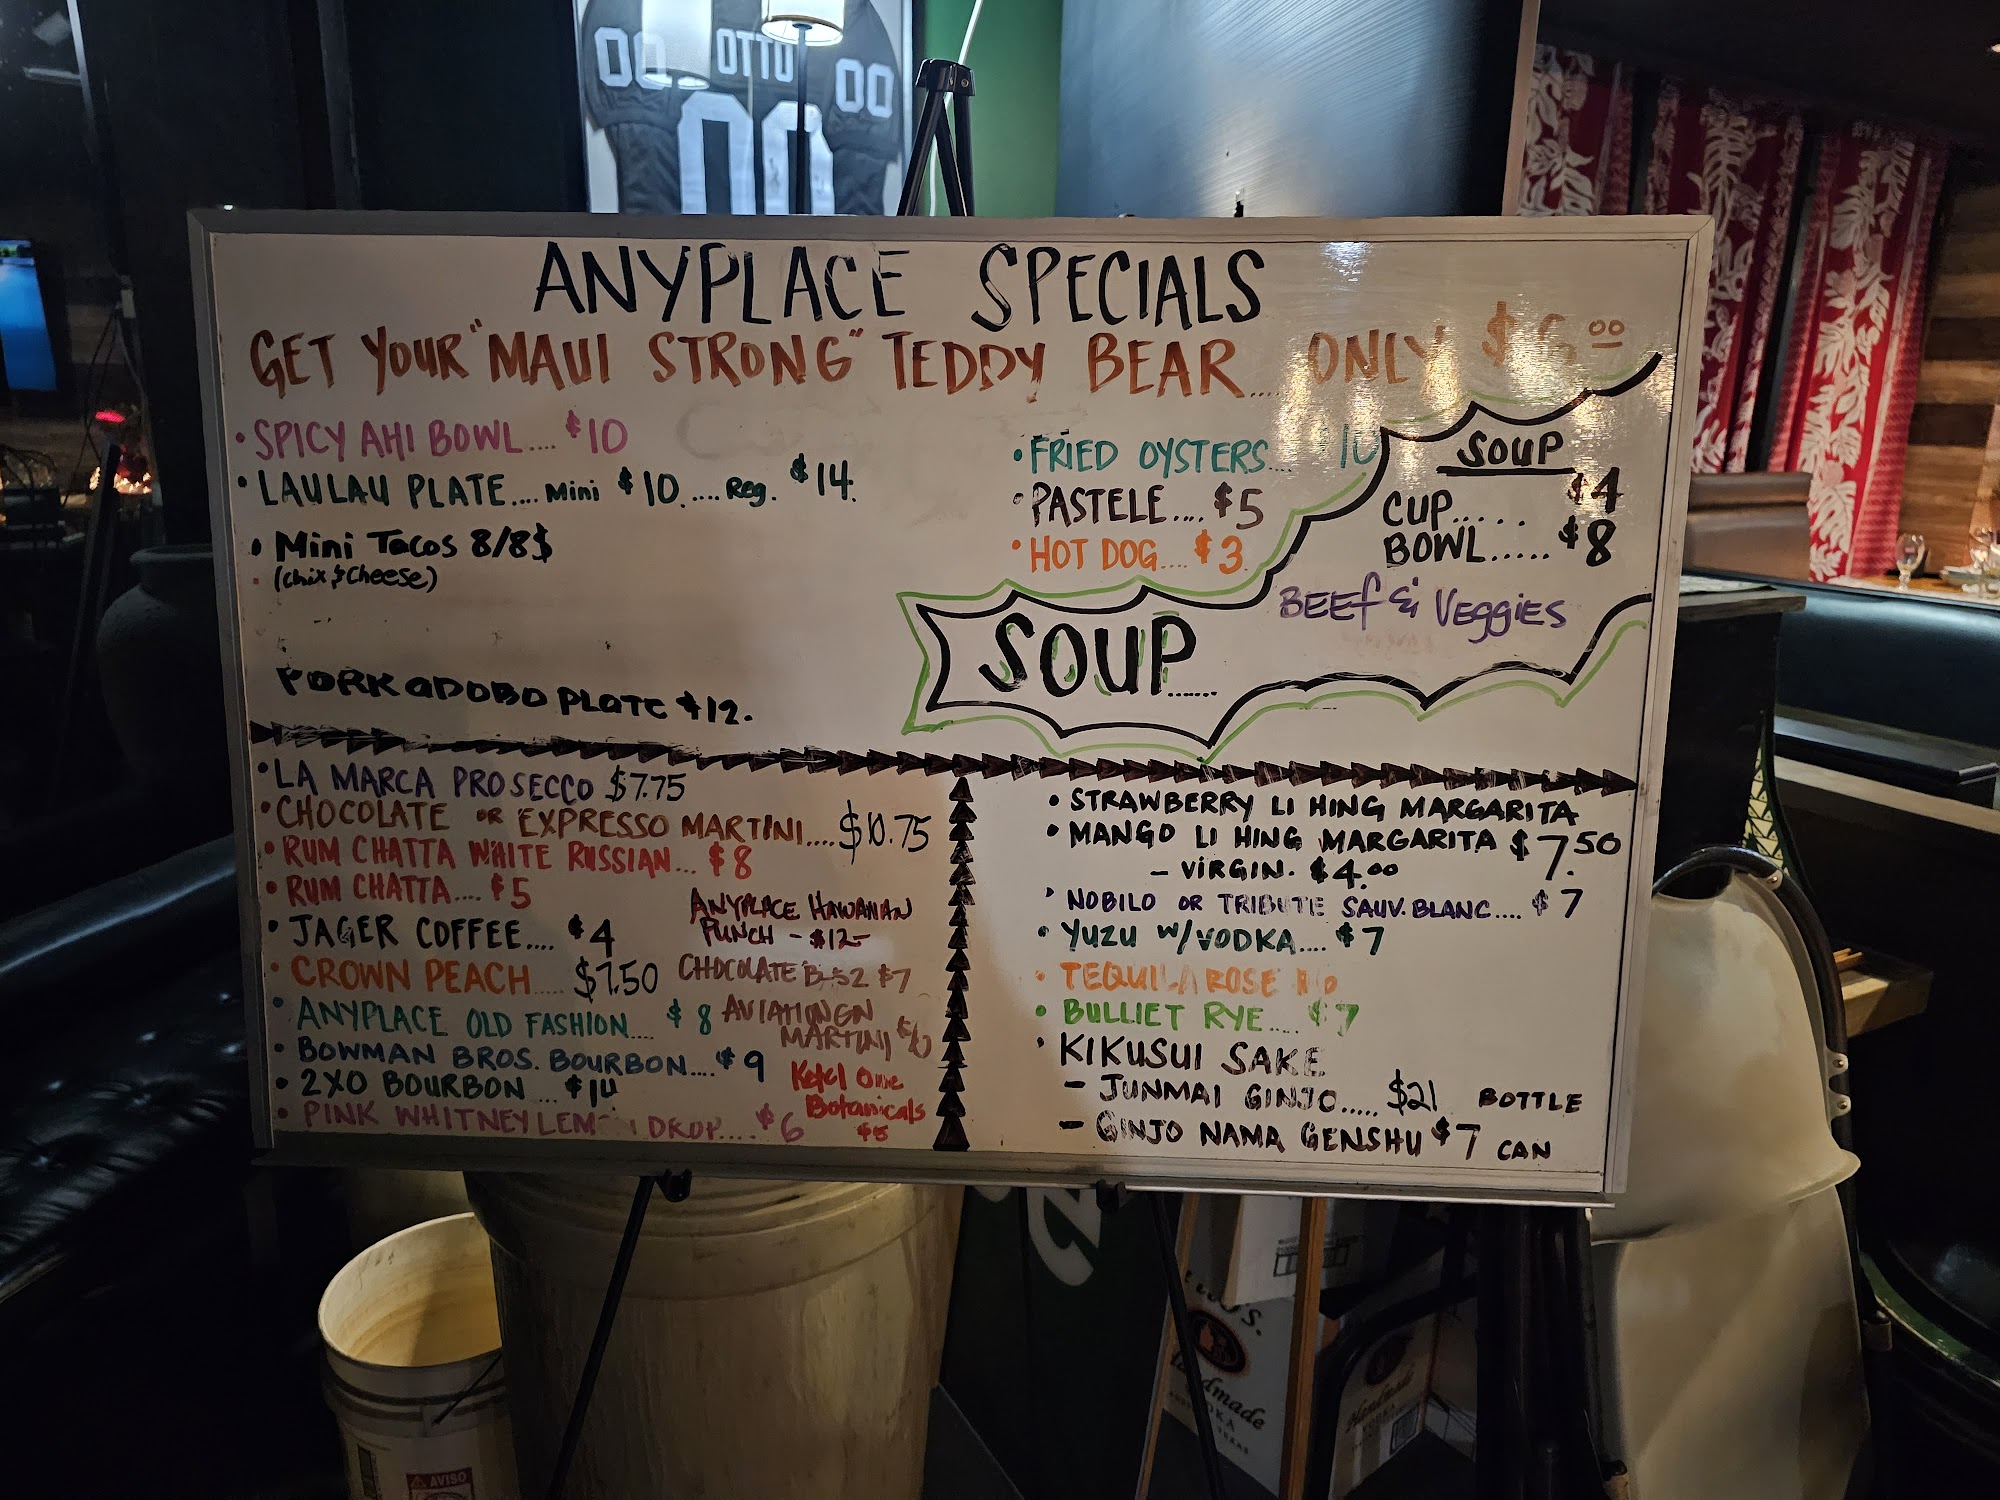 00 OTTO 00
00
ANYPLACE SPECIALS
GET YOUR "MAUI STRONG" TEDDY BEAR.... ONLY $6.00
• SPICY AHI BOWL.... $10
• LAULAU PLATE.... Mini $10.....Reg. $14.
• Mini Tacos 8/8$
• (Chix & Cheese)
PORK ADOBO PLATE $12.
• FRIED OYSTERS.... $10
• PASTELE.... $5
• HOT DOG.... $3.
SOUP
CUP..... $4
BOWL..... $8
BEEF & VEGGIES
SOUP......
• LA MARCA PROSECCO $7.75
• CHOCOLATE OR EXPRESSO MARTINI....$10.75
• RUM CHATTA WHITE RUSSIAN... $8
• RUM CHATTA.... $5
• JAGER COFFEE.... $4
• CROWN PEACH.... $7.50
• ANYPLACE OLD FASHION.... $8
• BOWMAN BROS. BOURBON.... $9
• 2XO BOURBON ... $14
• PINK WHITNEY LEMON DROP.... $6
ANYPLACE HAWAIIAN
PUNCH - $12-
CHOCOLATE B-52 $7
AVIATION GN
MARTINI $10
Ketel One
Botanicals
$5
• STRAWBERRY LI HING MARGARITA
• MANGO LI HING MARGARITA $7.50
- VIRGIN. $4.00
• NOBILO OR TRIBUTE SAUV. BLANC.... $7
• YUZU W/VODKA.... $7
• TEQUILA ROSE
• BULLIET RYE.... $7
• KIKUSUI SAKE
- JUNMAI GINJO..... $21 BOTTLE
- GINJO NAMA GENSHU $7 CAN
Handmade
VODKA
Handmade
AVISO